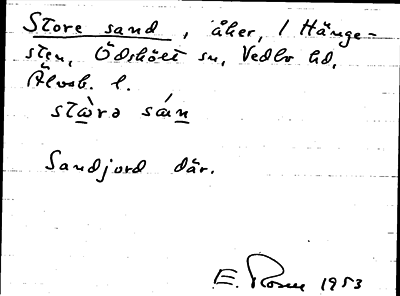 Store sand, åker, 1 Hänge-
sten, Ödskölt sn, Vedbo hd,
Älvsb. l.
stòrə sán
Sandjord där.
E. Rosen 1953